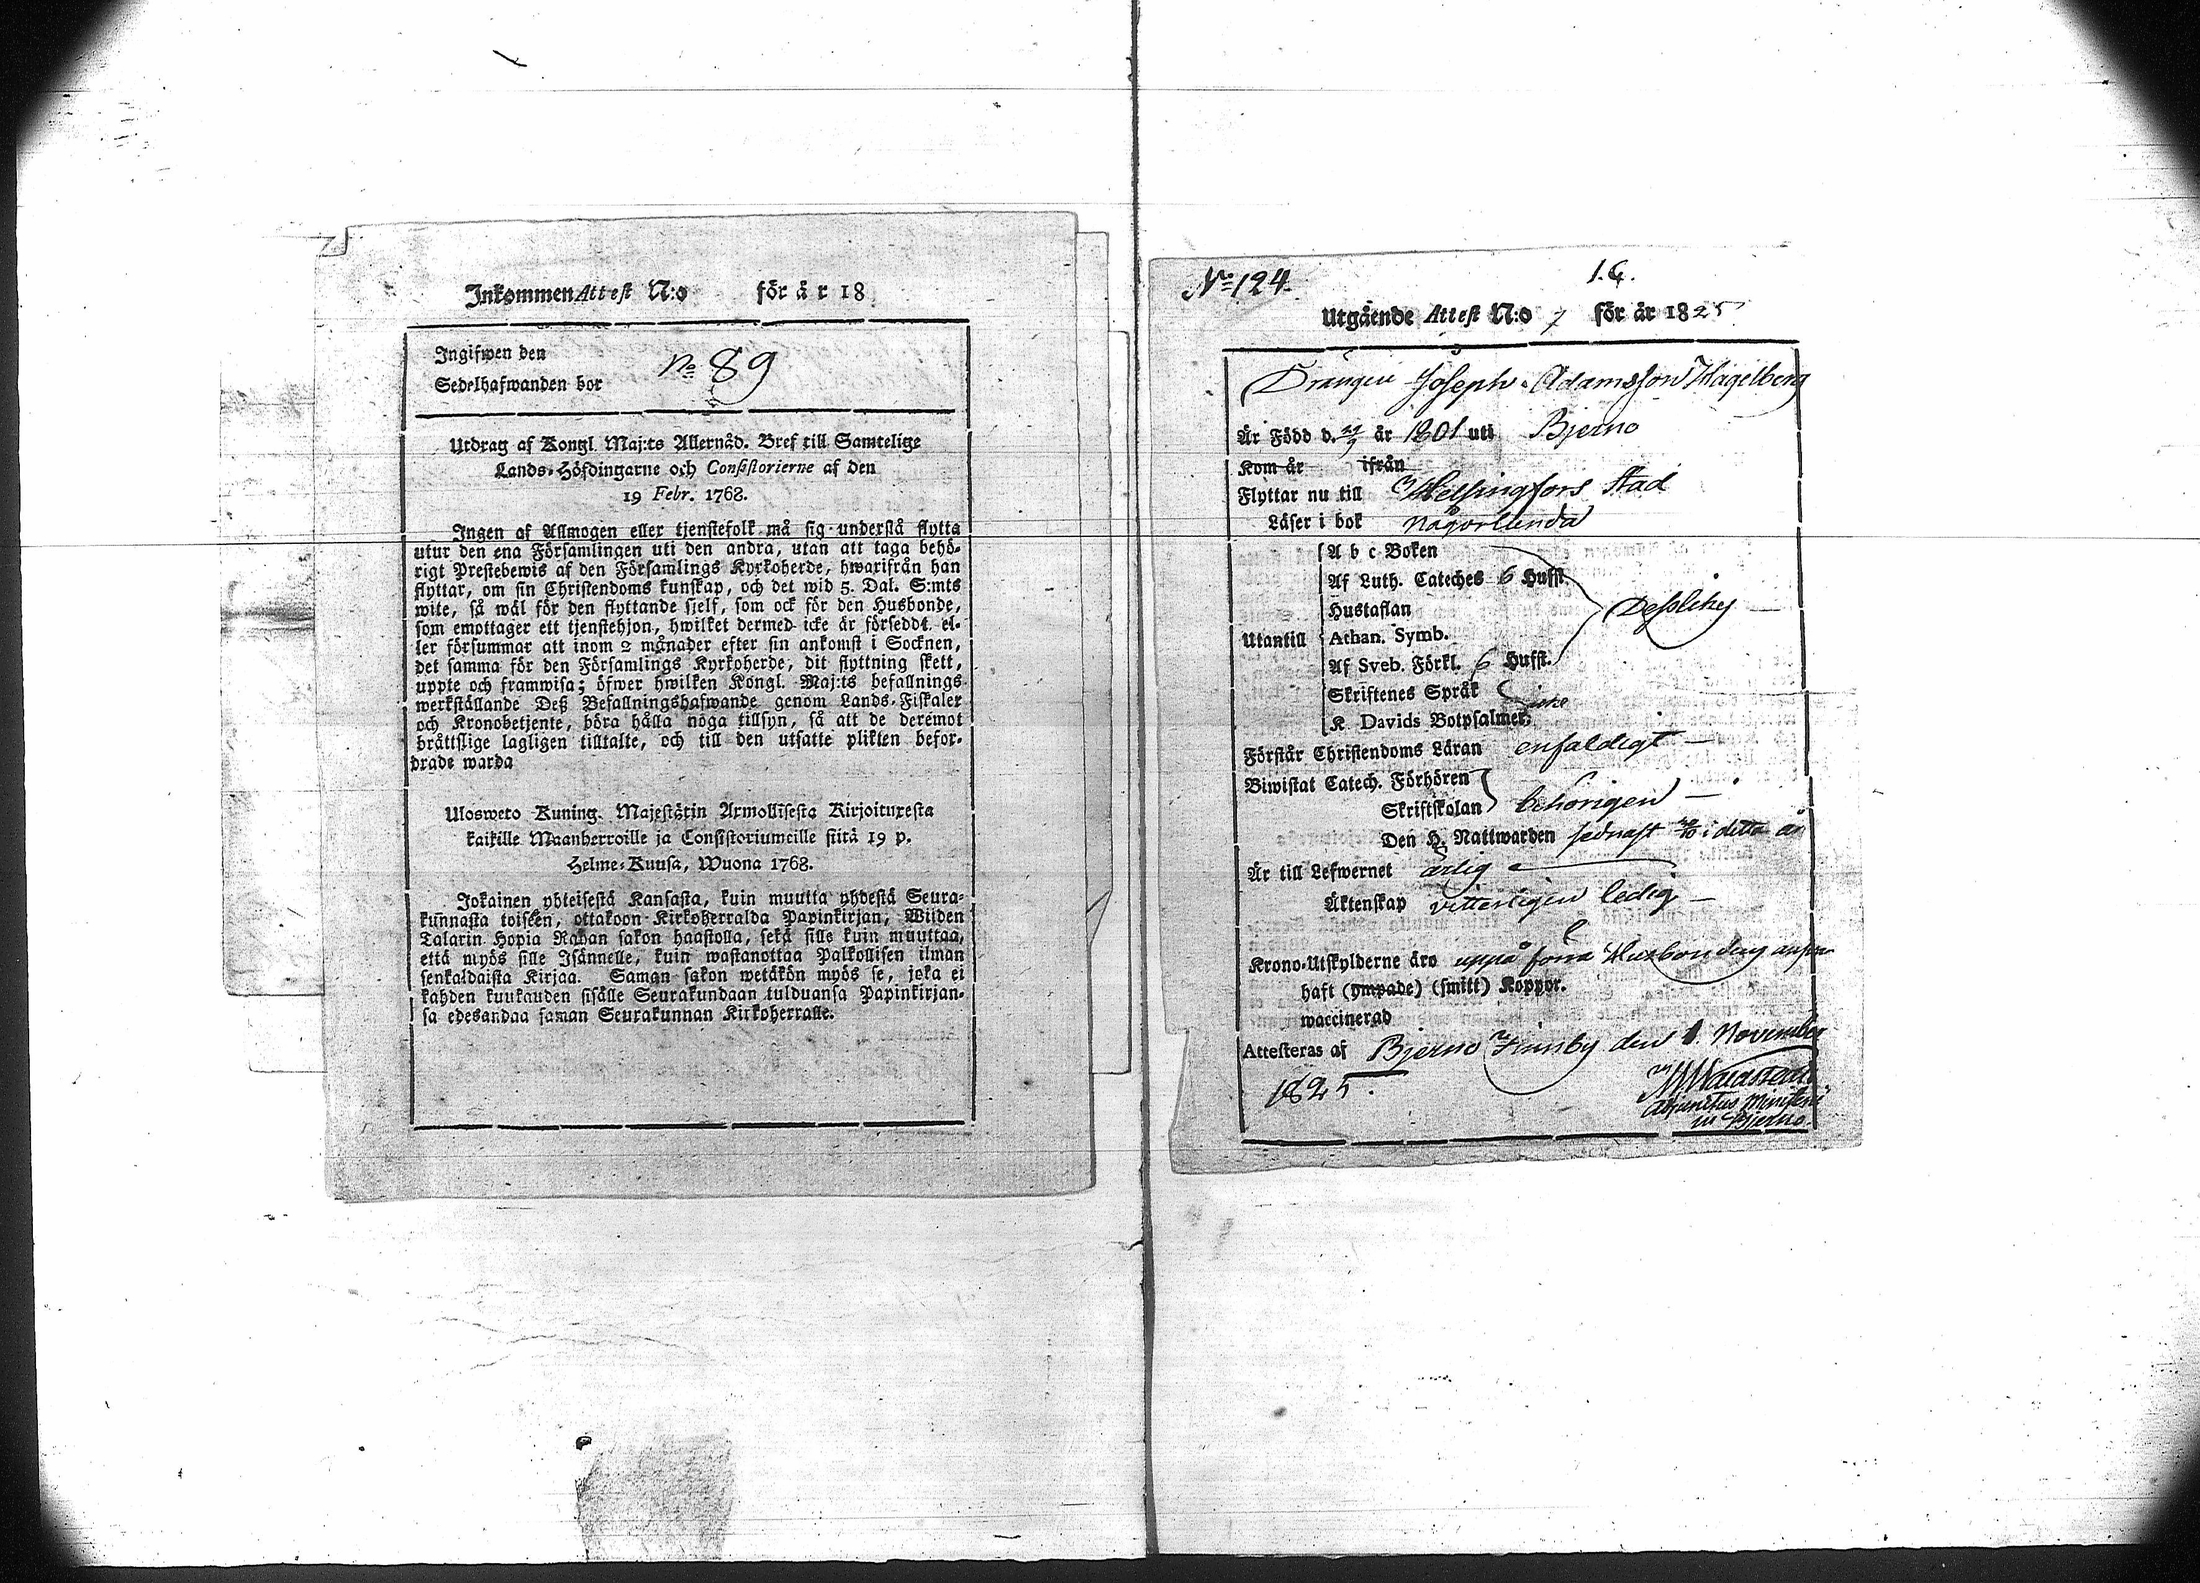 Inkommen Attest N:o för år 18
Ingifwen den
Sedelhafwanden bor
No 89
Utdrag af Kongl. Maj:ts Allernåd. Bref till Samtelige
Lands-Höfdingarne och Consistorierne af den
19 Febr. 1768.
Ingen af Allmogen eller tjenstefolk må sig understå flytta
utur den ena Församlingen uti den andra, utan att taga behö-
rigt Prestebewis af den Församlings Kyrkoherde, hwarifrån han
flyttar, om sin Christendoms kunskap, och det wid 5. Dal. S:mts
wite, så wäl för den flyttande sjelf, som ock för den Husbonde,
som emottager ett tjenstehjon, hwilket dermed icke är försedt el-
ler försummar att inom 2 månader efter sin ankomst i Socknen,
det samma för den Församlings Kyrkoherde, dit flyttning skett,
uppte och framwisa; öfwer hwilken Kongl. Maj:ts befallnings
werkställande Deß Befallningshafwande genom Lands-Fiskaler
och Kronobetjente, böra hålla noga tillsyn, så att de deremot
bråttslige lagligen tilltalte, och till den utsatte plikten befor-
drade warda
Ulosweto Kuning. Majestätin Armollisesta Kirjoituxesta
kaikille Maanherroille ja Consistoriumeille siitä 19 p.
Helme-Kuusa, Wuona 1768.
Jokainen yhteisestä Kansasta, kuin muutta yhdestä Seura-
kunnasta toiseen, ottakoon Kirkoherralda Papinkirjan, Wiiden
Talarin Hopia Rahan sakon haastolla, sekä sille kuin muuttaa,
että myös sille Isännelle, kuin wastanottaa Palkollisen ilman
senkaldaista Kirjaa. Saman sakon wetäkön myös se, joka ei
kahden kuukauden sisälle Seurakundaan tulduansa Papinkirjan-
sa edesandaa saman Seurakunnan Kirkoherralle.
No 124. 1.C.
Utgående Attest N:o 7 för år 1825
Drängen Joseph Adamsson Hagelberg
Är Född d. år 1801 uti Bjerno
Kom år ifrån
Flyttar nu till Helsingfors Stad
Läser i bok någorlunda
A b c Boken
Af Luth. Cateches 6 Hufst.
Hustaflan
Utantill Athan. Symb.
Af Sveb. Förkl. 6 Hufst.
Dessliky
Skriftenes Språk
K. Davids Botpsalmer,
icke
Förstår Christendoms Läran enfaldigt
Biwistat Catech. Förhören
Skriftskolan
behörigen
Den H. Nattwarden sednast i detta år
Är till Lefwernet ärlig
Äktenskap vitterligen ledig
Krono-Utskylderne äro uppå förra Husbondens answar
haft (ympade) (smitt) Koppor.
waccinerad
Attesteras af Bjerno Finnby den 1. November
1825.
Adjunctus Ministerii
in Bjerno.